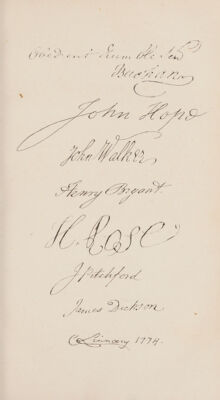 Obedient Humble Ser
Buchan
John Hope
John Walker
Henry Bryant
H. Rose
J Pitchford
James Dickson
Linnæus 1774.